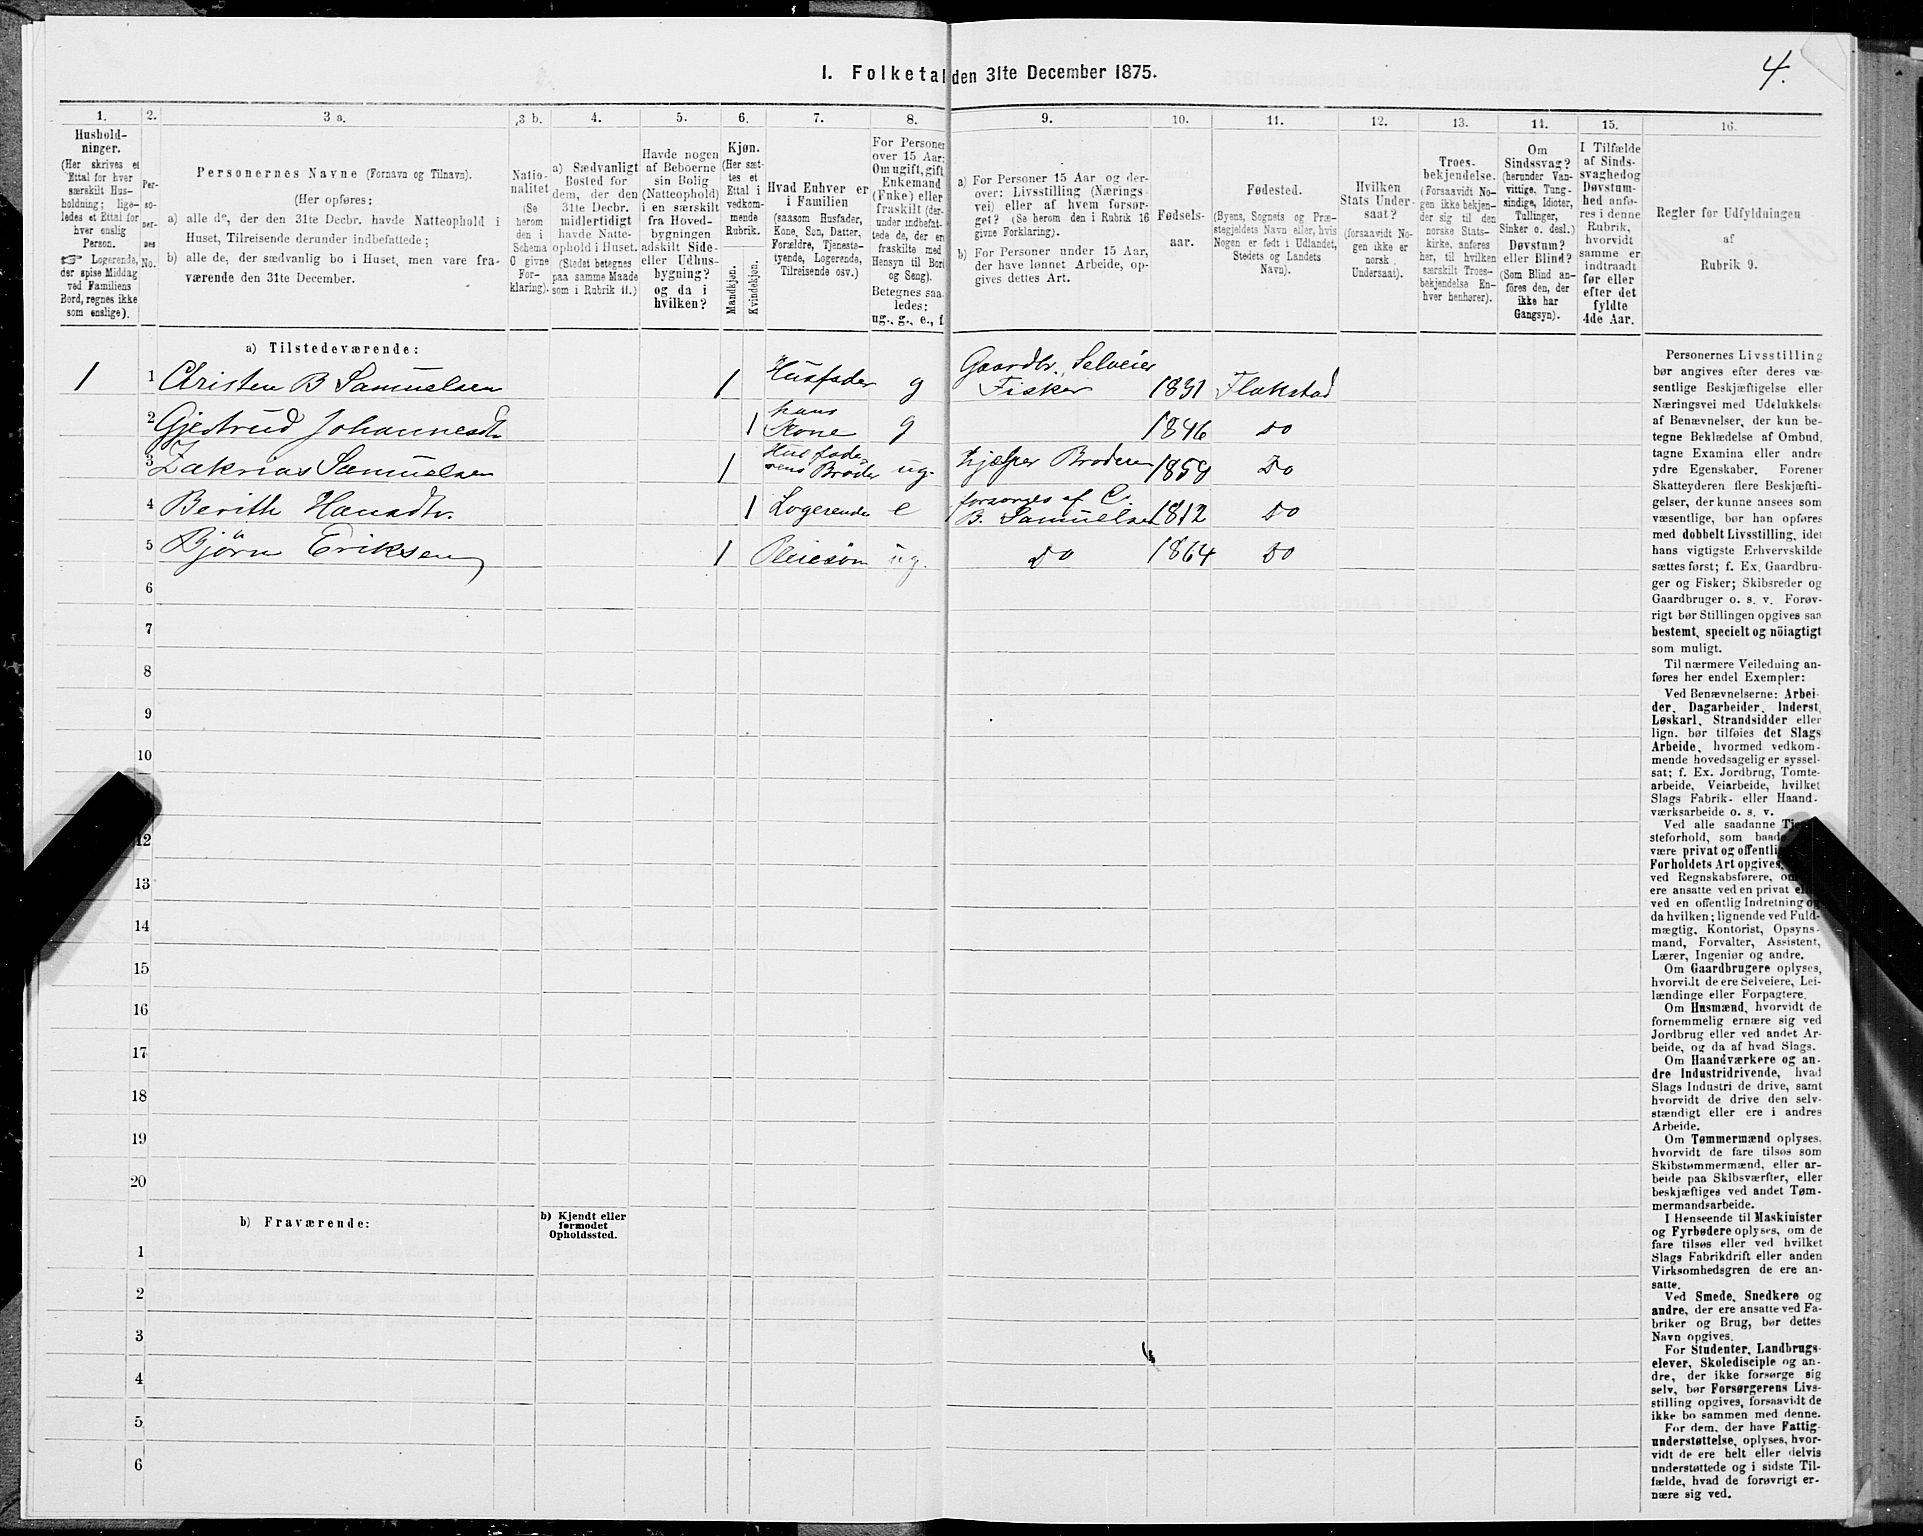 I. Folketal den 31te December 1875.
4.
1.
Hushold-
ninger.
(Her skrives et
Ettal for hver
særskilt Hus-
holdning; lige-
ledes et Ettal for
hver enslig
Person.
☞ Logerende,
der spise Middag
ved Familiens
Bord, regnes ikke
som enslige).
2.
Per-
so-
ner-
nes
No.
3 a.
Personernes Navne (Fornavn og Tilnavn).
(Her opføres:
a) alle de, der den 31te Decbr. havde Natteophold i
Huset, Tilreisende derunder indbefattede;
b) alle de, der sædvanlig bo i Huset, men vare fra-
værende den 31te December.
3 b.
Natio-
nalitet
(Se
herom
den i
Schema
O givne
For-
klaring).
4.
a) Sædvanligt
Bosted for
dem, der den
31te Decbr.
midlertidigt
havde Natte-
ophold i Huset.
(Stedet betegnes
paa samme Maade
som i Rubrik 11.)
5.
Havde nogen
af Beboerne
sin Bolig
(Natteophold)
i en særskilt
fra Hoved-
bygningen
adskilt Side-
eller Udhus-
bygning?
og da i
hvilken?
6.
Kjøn.
(Her sæt-
tes et
Ettal i
vedkom-
mende
Rubrik.
Mandkjøn.
Kvindekjøn.
7.
Hvad Enhver er
i Familien
(saasom Husfader,
Kone, Søn, Datter,
Forældre, Tjeneste-
tyende, Logerende,
Tilreisende osv.)
8.
For Personer
over 15 Aar:
Om ugift, gift,
Enkemand
(Enke) eller
fraskilt (der-
under indbefat-
tede de, der er
fraskilte med
Hensyn til Bord
og Seng).
Betegnes saa-
ledes:
ug., g., e., f.
9.
a) For Personer 15 Aar og der-
over: Livsstilling (Nærings-
vei) eller af hvem forsør-
get? (Se herom den i Rubrik 16
givne Forklaring).
b) For Personer under 15 Aar,
der have lønnet Arbeide, op-
gives dettes Art.
10.
Fødsels-
aar.
11.
Fødested.
(Byens, Sognets og Præ-
stegjeldets Navn eller, hvis
Nogen er født i Udlandet,
Stedets og Landets
Navn).
12.
Hvilken
Stats Under-
saat?
(forsaavidt No-
gen ikke er
norsk
Undersaat).
13.
Troes-
bekjendelse.
(Forsaavidt No-
gen ikke bekjen-
der sig til den
norske Stats-
kirke, anføres
her, til hvilken
særskilt Troes-
bekjendelse En-
hver henhører).
14.
Om
Sindssvag?
(herunder Van-
vittige, Tung-
sindige, Idioter,
Tullinger,
Sinker o. desl.)
Døvstum?
eller Blind?
(Som Blind an-
føres den, der
ikke har
Gangsyn).
15.
I Tilfælde
af Sinds-
svaghed og
Døvstum-
hed anfø-
res i denne
Rubrik,
hvorvidt
samme er
indtraadt
før eller
efter det
fyldte
4de Aar.
16.
Regler for Udfyldningen
af
Rubrik 9.
a) Tilstedeværende:
1 1 Christen B Samuelsen 1 Husfader g Gaardbr., Selveier Fisker 1831 Flakstad
2 Gjertrud Johannesdt. 1 hans Kone g 1846 Do
3 Zakrias Samuelsen 1 Husfaderens Broder ug. hjelper Broderen 1859 Do
4 Berith Hansdtr. 1 Logerende e forsørges af C. B. Samuelsen 1812 Do
5 Bjørn Eriksen 1 Pleiesøn ug. Do 1864 Do
6
7
8
9
10
12
13
14
15
16
17
18
19
20
b) Fraværende:
b) Kjendt eller
formodet
Opholdssted.
1
2
3
4
5
6
Personernes Livsstilling
bør angives efter deres væ-
sentlige Beskjæftigelse eller
Næringsvei med Udelukkelse
af Benævnelser, der kun be-
tegne Beklædelse af Ombud,
tagne Examina eller andre
ydre Egenskaber. Forener
Skatteyderen flere Beskjæfti-
gelser, der kunne ansees som
væsentlige, bør han opføres
med dobbelt Livsstilling, idet
hans vigtigste Erhvervskilde
sættes først; f. Ex. Gaardbru-
ger og Fisker; Skibsreder og
Gaardbruger o. s. v. Forøv-
rigt bør Stillingen opgives saa
bestemt, specielt og nöiagtigt
som muligt.
Til nærmere Veiledning an-
føres her endel Exempler:
Ved Benævnelserne: Arbei-
der, Dagarbeider, Inderst,
Løskarl, Strandsidder eller
lign. bør tilføies det Slags
Arbeide, hvormed vedkom-
mende hovedsagelig er syssel-
sat; f. Ex. Jordbrug, Tomte-
arbeide, Veiarbeide, hvilket
Slags Fabrik- eller Haand-
værksarbeide o. s. v.
Ved alle saadanne
steforhold, som baade
være privat og offentlig
Forholdets Art opgives,
ved Regnskabsførere, om
ere ansatte ved en privat eller
ved en offentlig Indretning og
da hvilken; lignende ved Fuld-
mægtig, Kontorist, Opsyns-
mand, Forvalter, Assistent,
Lærer, Ingeniør og andre.
Om Gaardbrugere oplyses,
hvorvidt de ere Selveiere, Lei-
lændinge eller Forpagtere.
Om Husmænd, hvorvidt de
fornemmelig ernære sig ved
Jordbrug eller ved andet Ar-
beide, og da af hvad Slags.
Om Haandværkere og an-
dre Industridrivende, hvad
Slags Industri de drive, samt
hvorvidt de drive den selv-
stændigt eller ere i andres
Arbeide.
Om Tømmermænd oplyses,
hvorvidt de fare tilsøs som
Skibstømmermænd, eller ar-
beide paa Skibsværfter, eller
beskjæftiges ved andet Tøm-
mermandsarbeide.
I Henseende til Maskinister
og Fyrbødere oplyses, om de
fare tilsøs eller ved hvilket
Slags Fabrikdrift eller anden
Virksomhedsgren de ere an-
satte.
Ved Smede, Snedkere og
andre, der ere ansatte ved Fa-
briker og Brug, bør dettes
Navn opgives.
For Studenter, Landbrugs-
elever, Skoledisciple og an-
dre, der ikke forsørge sig
selv, bør Forsørgerens Livs-
stilling opgives, forsaavidt de
ikke bo sammen med denne.
For dem, der have Fattig-
understøttelse, oplyses, hvor-
vidt de ere helt eller delvis
understøttede og i sidste Til-
fælde, hvad de forøvrigt er-
nære sig ved.